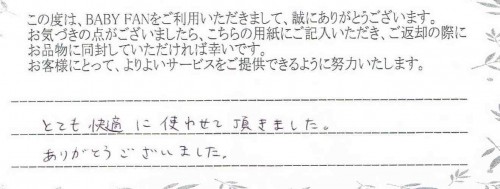 この度は、BABY FANをご利用いただきまして、誠にありがとうございます。
お気づきの点がございましたら、こちらの用紙にご記入いただき、ご返却の際に
お品物に同封していただければ幸いです。
お客様にとって、よりよいサービスをご提供できるように努力いたします。
とても快適に使わせて頂きました。
ありがとうございました。